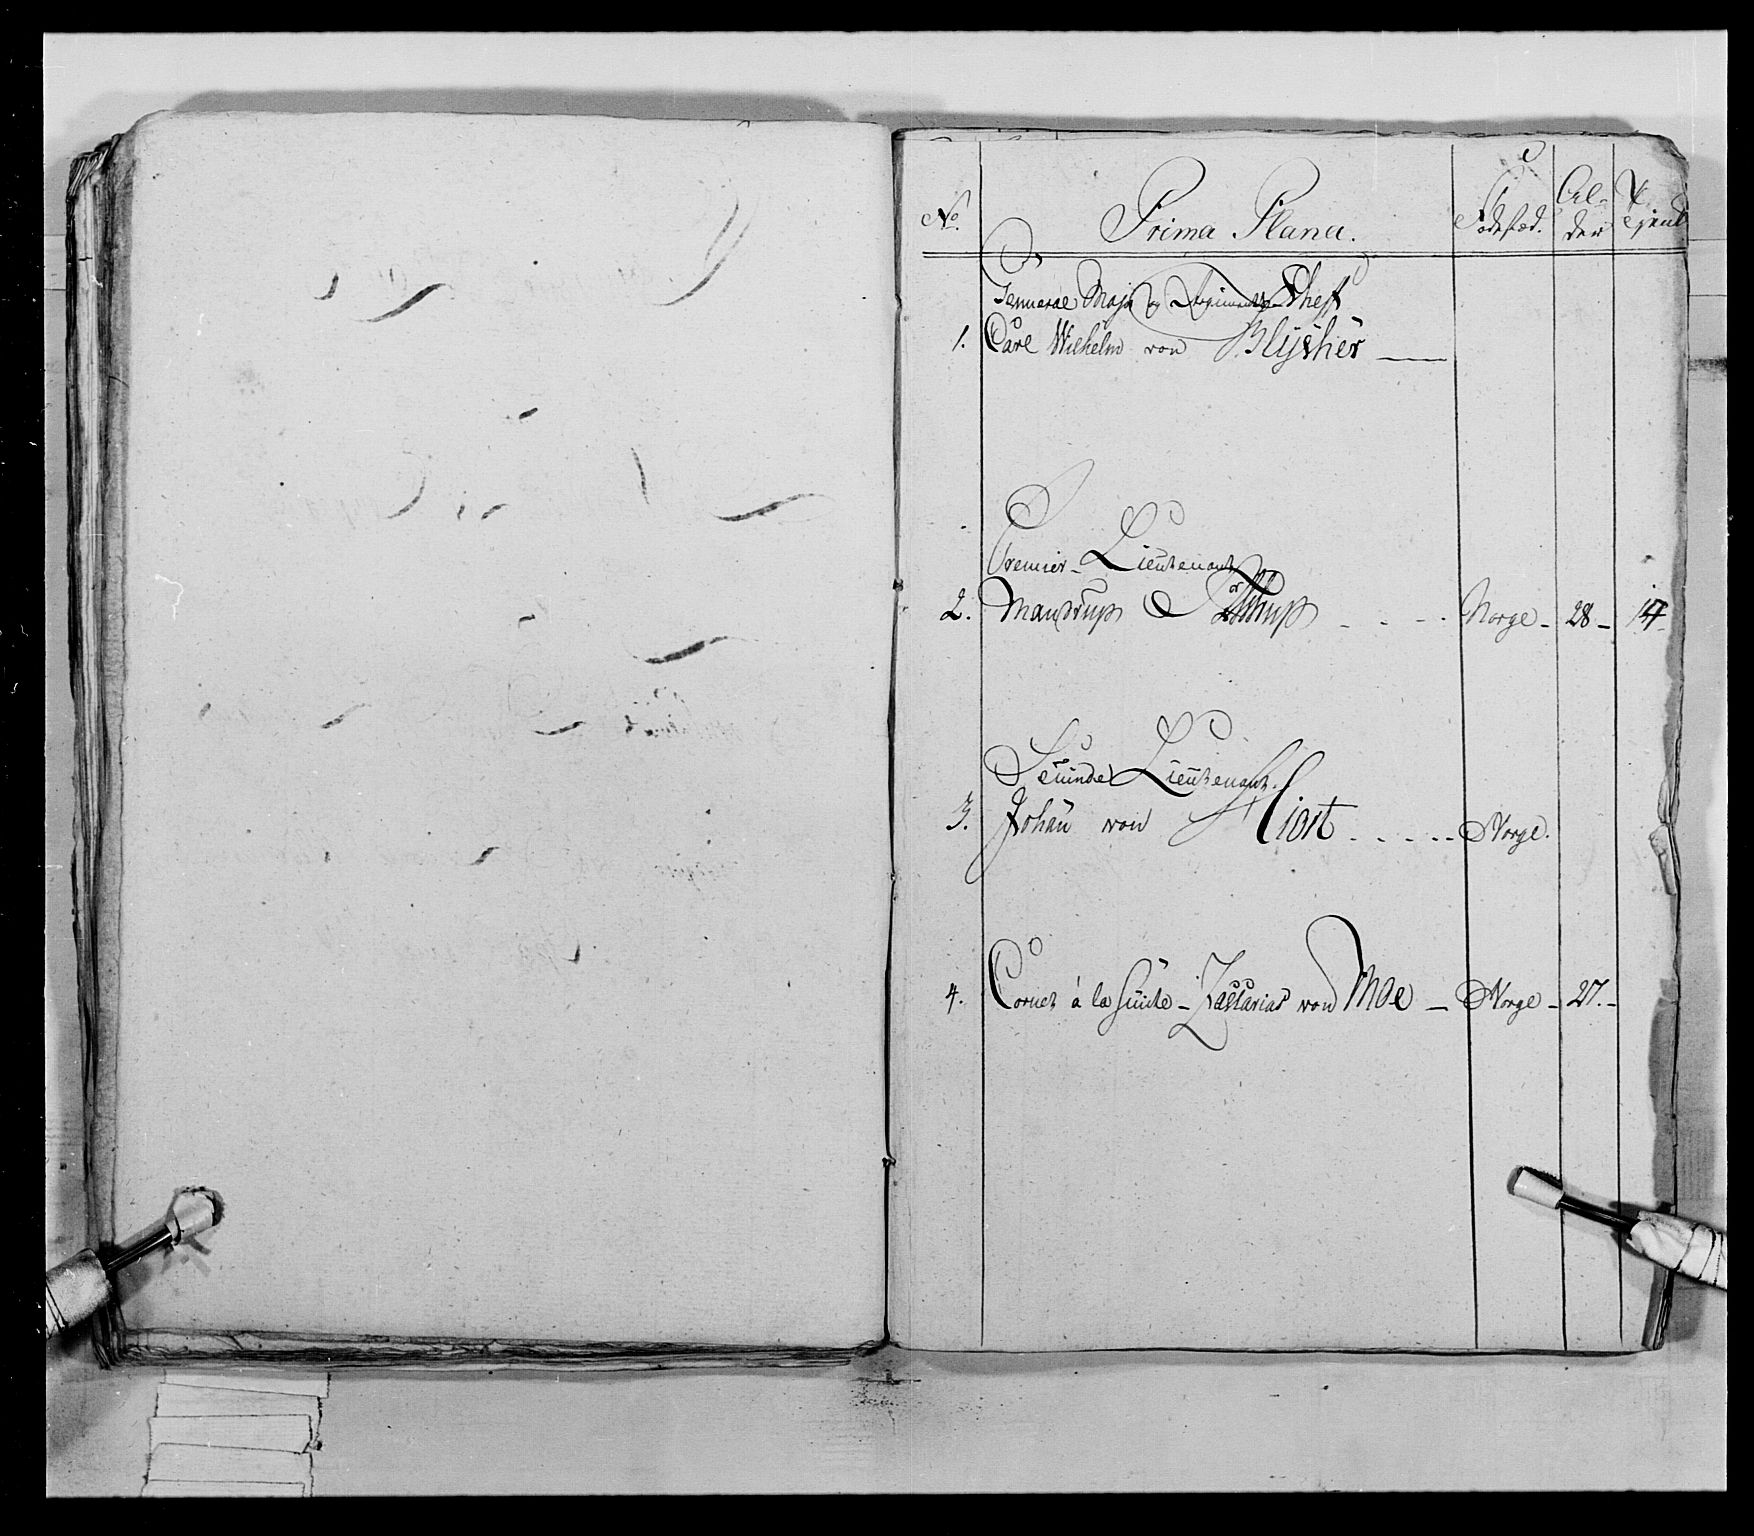 No. Prima Plana. Fødestæd. Al- Tjent
der
General Major og Regiments Cheff
1. Carl Wilhelm von Blÿcher
Premier-Lieutenant
2. Mandrup - - - Norge - 28 - 14
Secunde Lieutenant.
3. Johan von Hiort - - - - - Norge.
4. Cornet á la Suite - Zacharias von Moe - Norge - 27. -